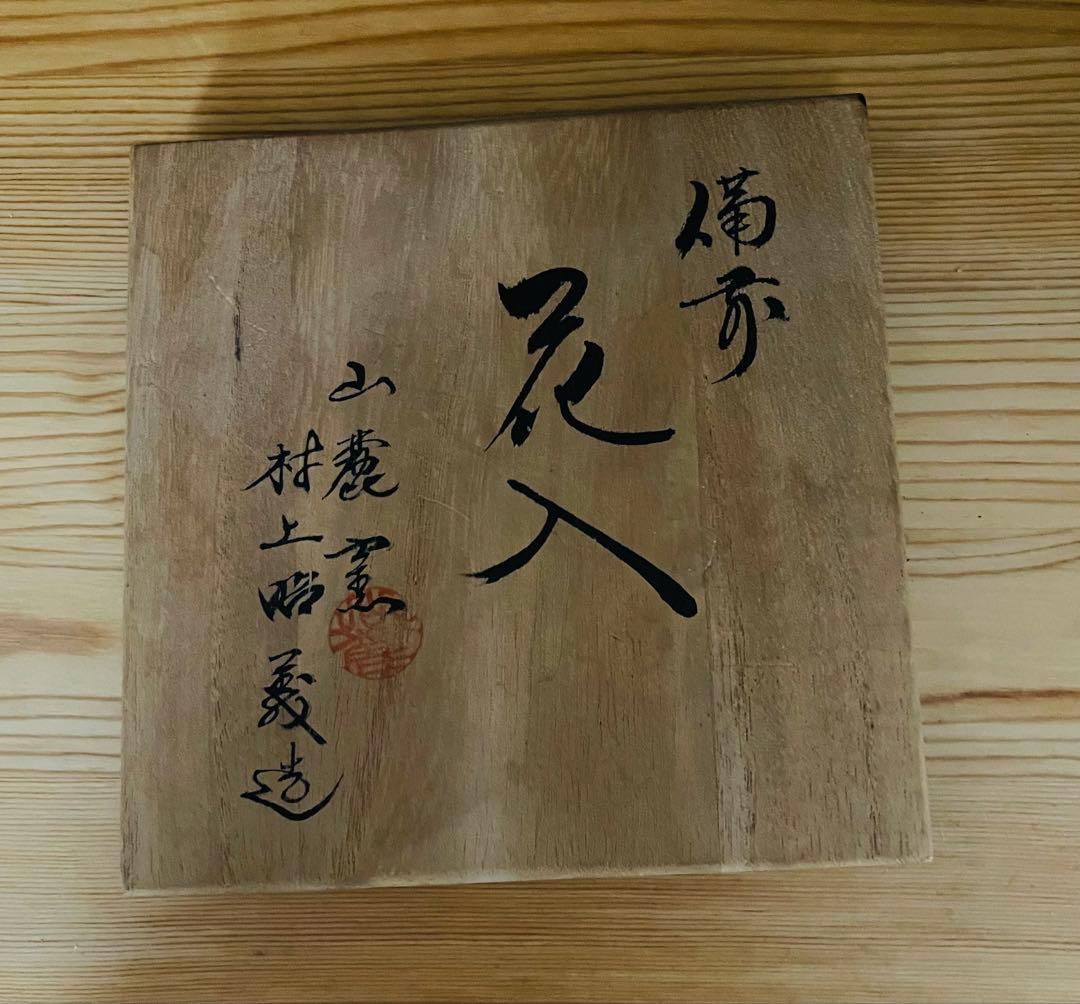 備前
花入
山麓窯
村上昭義造